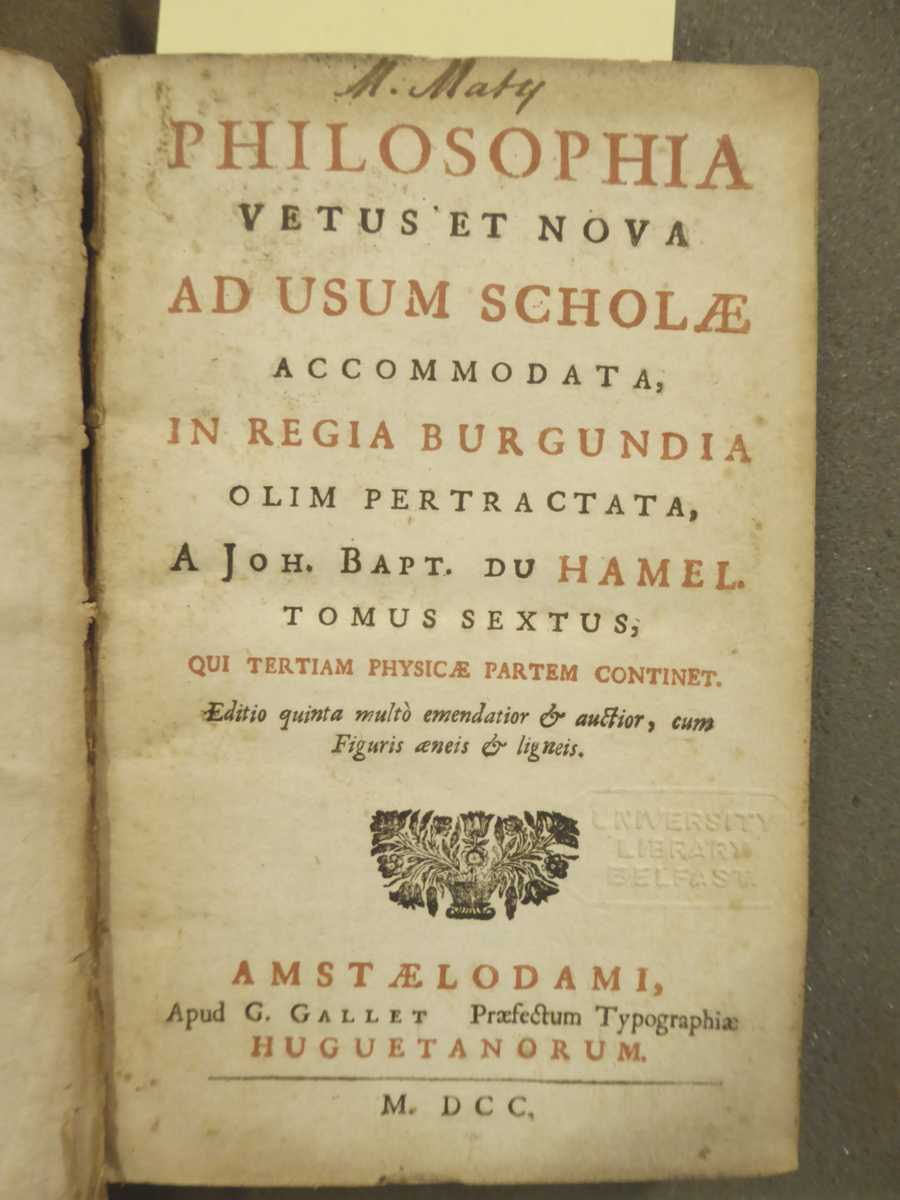 M. Maty
PHILOSOPHIA
VETUS ET NOVA
AD USUM SCHOLÆ
ACCOMMODATA,
IN REGIA BURGUNDIA
OLIM PERTRACTATA,
A JOH. BAPT. DU HAMEL.
TOMUS SEXTUS,
QUI TERTIAM PHYSICÆ PARTEM CONTINET.
Editio quinta multò emendatior & auctior, cum
Figuris æneis & ligneis.
UNIVERSITY
LIBRARY
BELFAST.
AMSTÆLODAMI,
Apud G. GALLET Præfectum Typographiæ
HUGUETANORUM.
M. DCC.